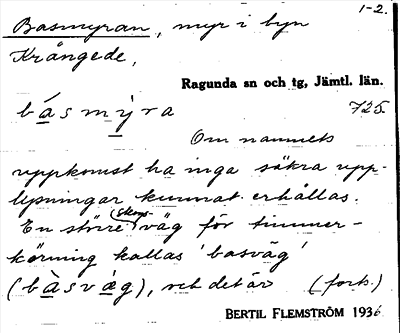 1-2.
Basmyran, myr i byn
Krångede,
Ragunda sn och tg, Jämtl. län.
básmỳra 725.
Om namnets
uppkomst ha inga säkra upp-
lysningar kunnat erhållas.
En större skogs-väg för timmer-
körning kallas 'basväg'
(bàsvæg), och det är (forts.)
BERTIL FLEMSTRÖM 1936